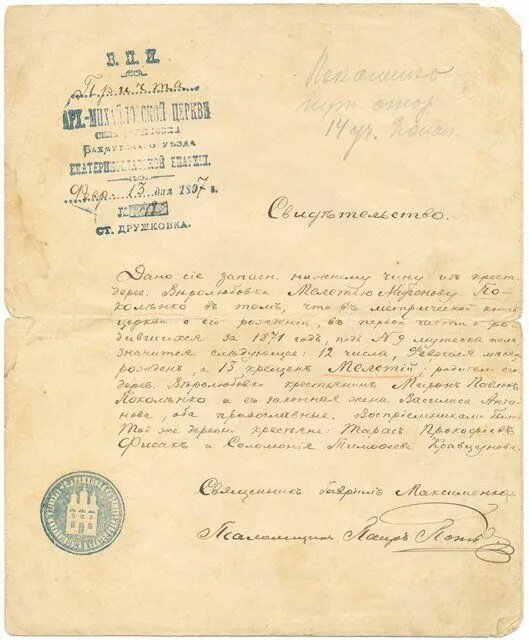 В. П. И.
Причта
АРХ.-МИХАЙЛОВСКОЙ ЦЕРКВИ
СЕЛА
БАХМУТСКАГО УѢЗДА
ЕКАТЕРИНОСЛАВСКОЙ ЕПАРХІИ.
Февр. 13 дня 1897 г.
№
СТ. ДРУЖКОВКА.
14
Свидѣтельство.
Дано сіе запасн. нижнему чину изъ крест.
дерев. Вѣролюбовка Мелетію Миронову По-
коленко въ томъ, что въ метрической книгѣ
церкви о его рожденіи, въ первой части о ро-
дившихся за 1871 годъ, подъ № 9 мужеска пола
значится слѣдующее: 12 числа, Февраля мѣс.
рожденъ, а 13 крещенъ Мелетій, родители его
дерев. Вѣролюбовка крестьянинъ Миронъ Павловъ
Поколенко и его законная жена Василиса Анто-
нова, оба православные. Воспріемниками были
той же деревни крестьяне: Тарасъ Прокофіевъ
Фисакъ и Соломонія Тимофеева Кравцунова.
Священникъ Гавріилъ Максименко
Псаломщикъ